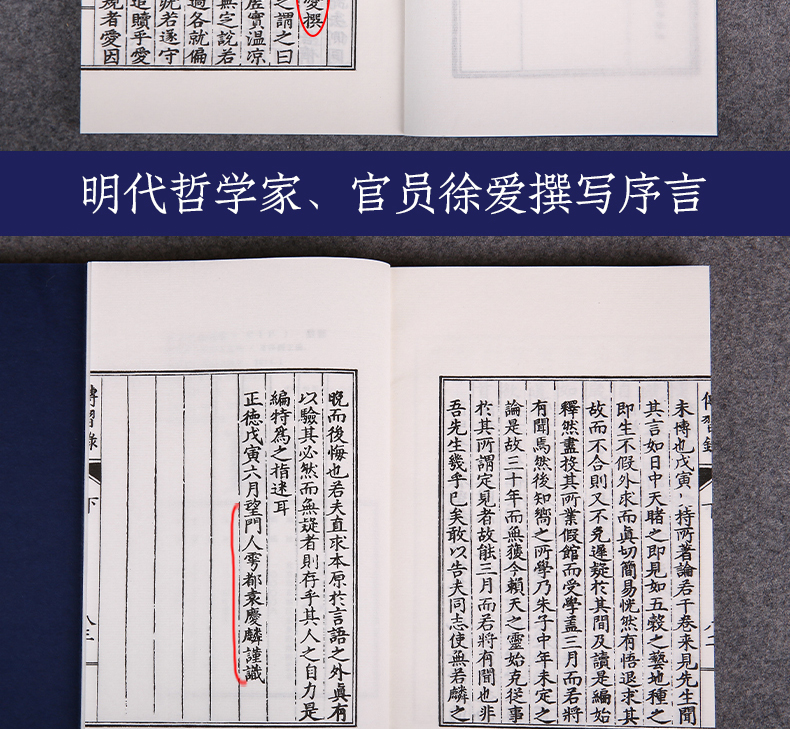 愛撰
之謂之曰
虛實温涼
無定說若
過各就偏
况若遂守
追贖乎愛
規者愛因
明代哲学家、官员徐爱撰写序言
未博也戊寅持所著論若千卷来見先生聞
其言如日中天睹之即見如五穀之藝地種之
即生不假外求而真切簡易恍然有悟退求其
故而不合則又不免遲疑於其間及讀是編始
釋然盡投其所業假館而受學盖三月而若將
有聞焉然後知嚮之所學乃朱子中年未定之
論是故三十年而無獲今賴天之靈始克從事
於其所謂定見者故能三月而若將有聞也非
吾先生幾乎已矣敢以告夫同志使無若麟之
晚而後悔也若夫直求本原於言語之外眞有
以驗其必然而無疑者則存乎其人之自力是
編特爲之指迷耳
正德戊寅六月望門人雩都袁慶麟謹識
傳習錄
下
八三